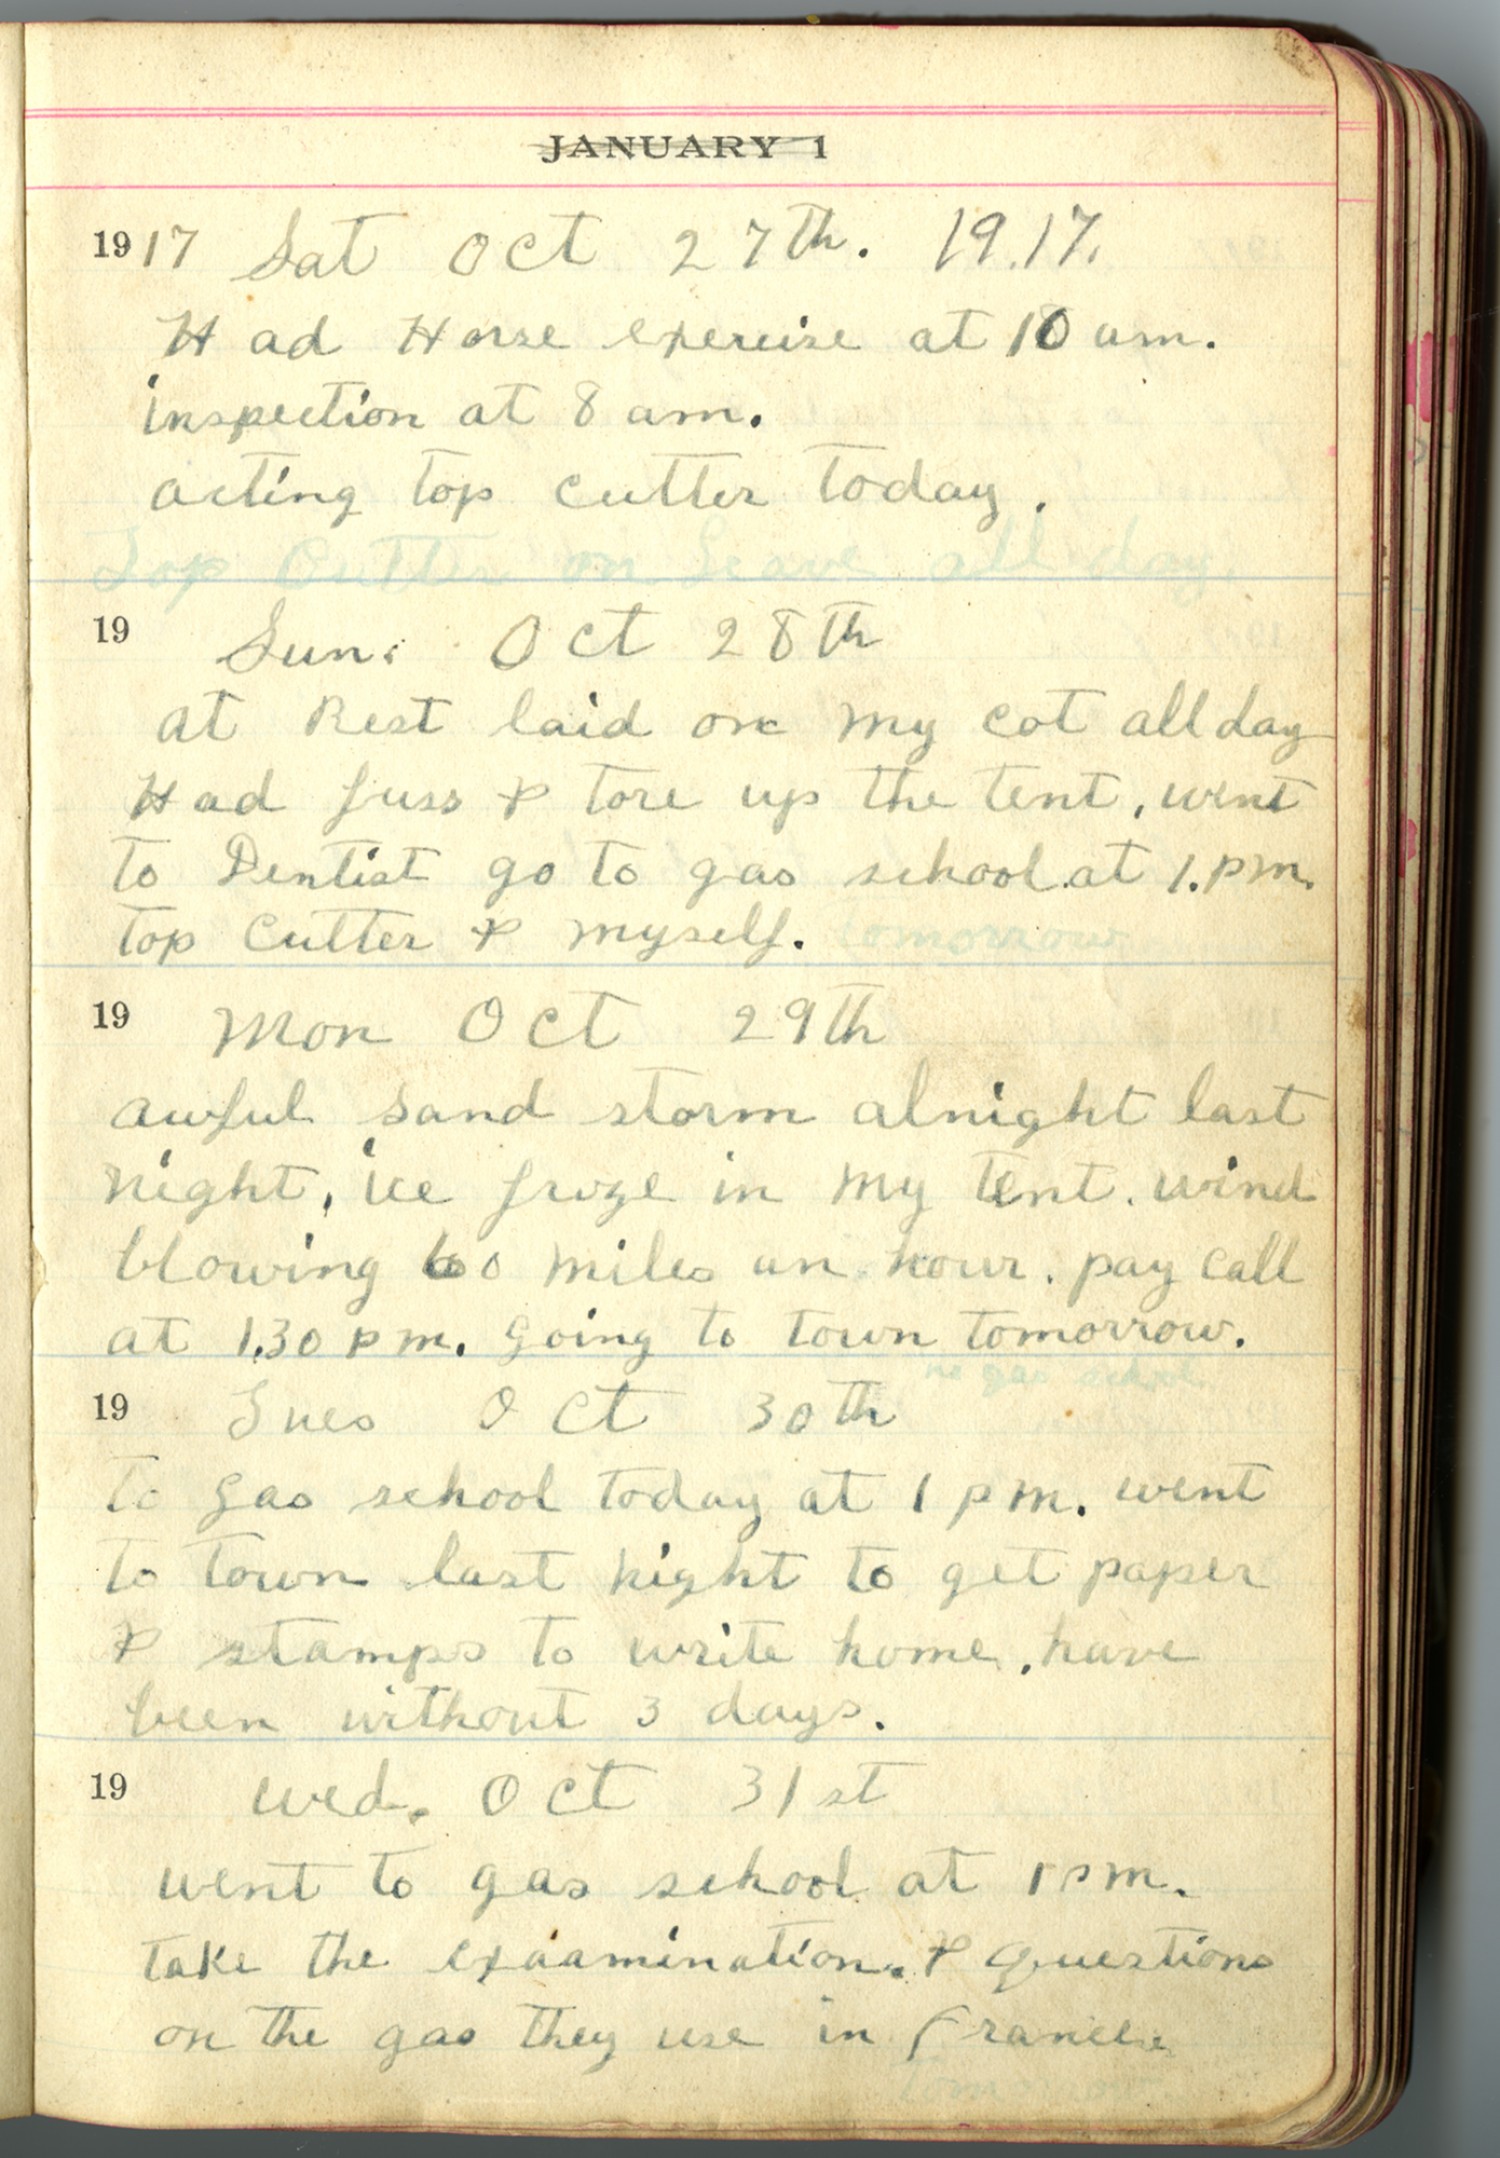 JANUARY 1
1917 Sat Oct 27th. 19.17.
Had Horse exercise at 10 am.
inspection at 8 am.
acting top cutter today.
Top Cutter on Leave all day.
19 Sun. Oct 28th
at Rest laid on my cot all day
Had fuss & tore up the tent, went
to Dentist go to gas school at 1.pm.
top Cutter & myself. tomorrow
19 Mon Oct 29th
awful sand storm alnight last
night, ice froze in my tent. wind
blowing 60 miles an hour. pay call
at 1.30 pm. going to town tomorrow.
no gas school
19 Tues Oct 30th
to gas school today at 1 pm. went
to town last night to get paper
& stamps to write home, have
been without 3 days.
19 Wed. Oct 31st
went to gas school at 1 pm.
take the exaamination. & Questions
on the gas they use in France.
tomorrow.